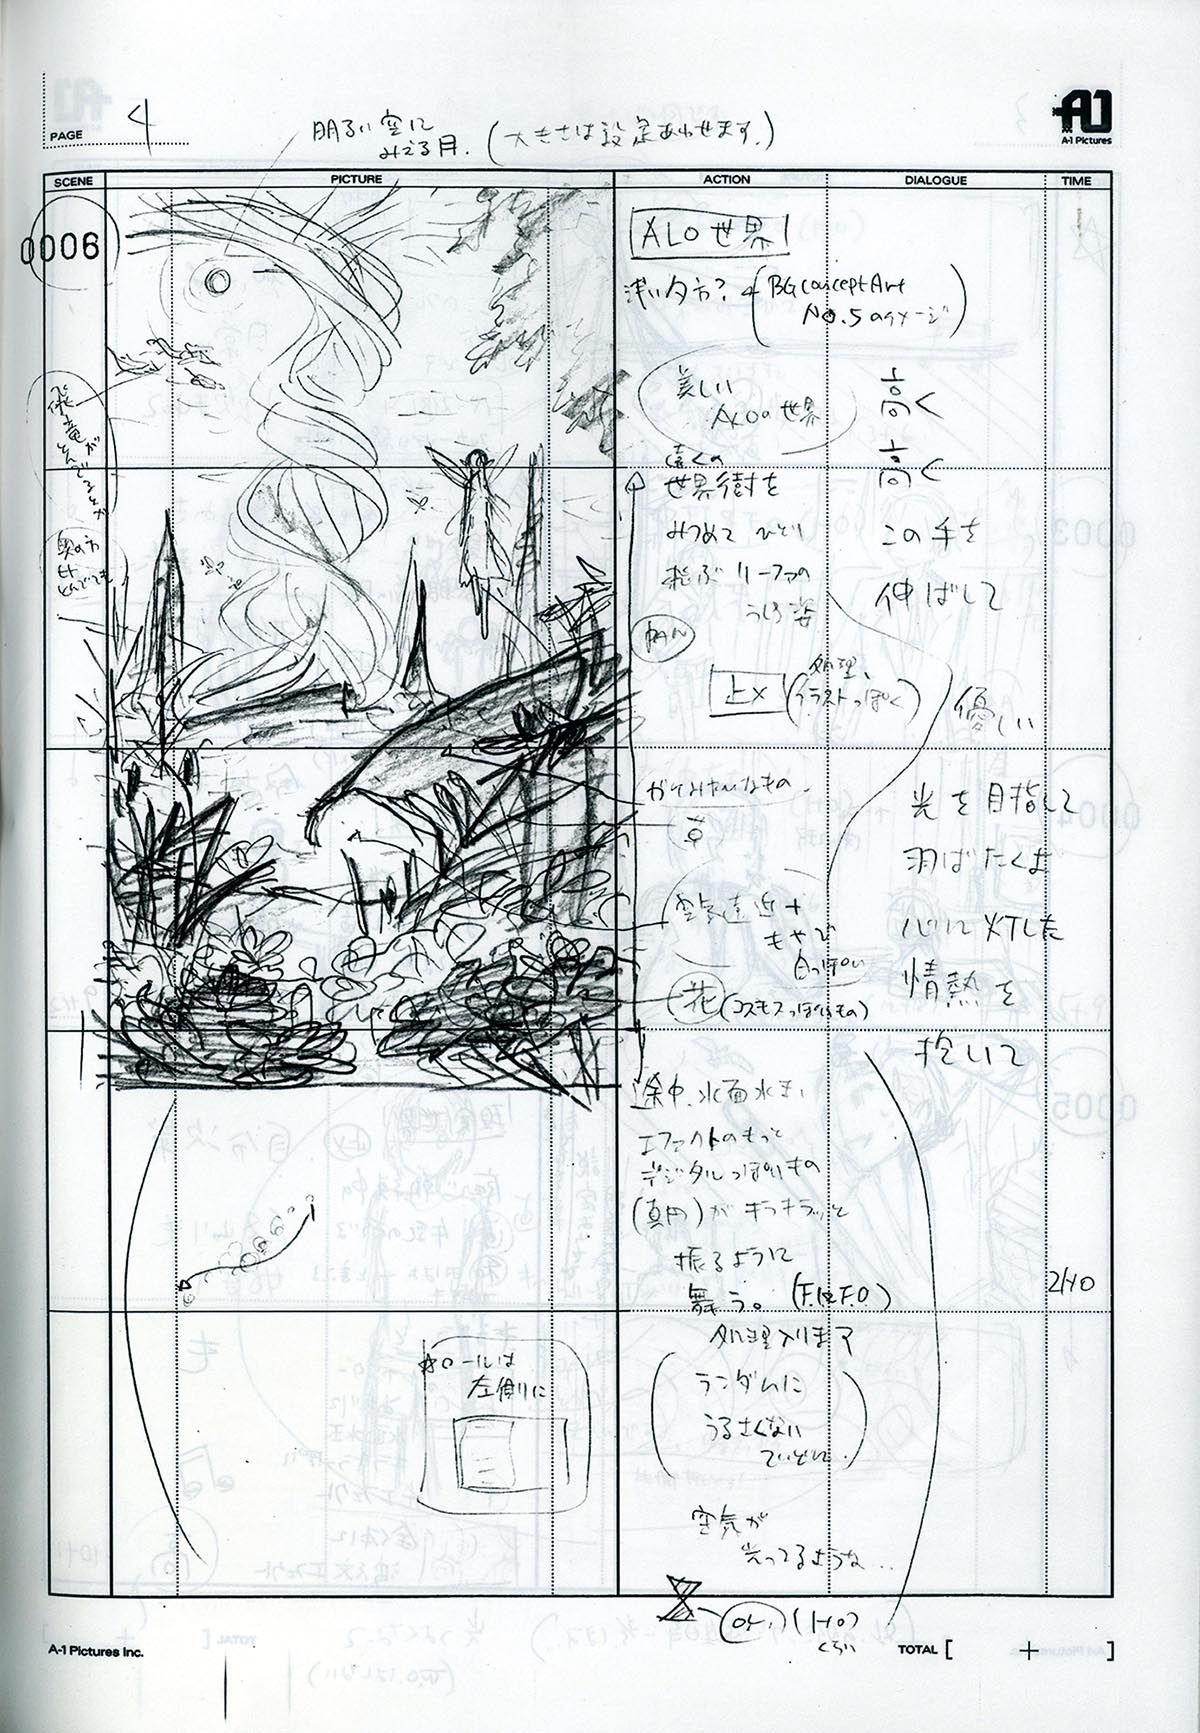 PAGE 4
明るい空に
みえる月. (大きさは設定あわせます.)
A-1 Pictures
SCENE
PICTURE
ACTION
DIALOGUE
TIME
0006
飛竜が
とんでるとか
奥の方
とんでても
ALO世界
浅い夕方?
(BG Concept Art
No.5のイメージ)
美しい
ALOの世界
遠くの
世界樹を
みつめて ひとり
飛ぶ リーファの
うしろ姿
PAN
止メ (処理、
イラストっぽく)
ガケみたいなもの.
草
空気遠近+
もやで
白っぽい
花 (コスモスっぽいもの)
途中、水面水玉、
エフェクトのもっと
デジタルっぽいもの
(真円)がキラキラッと
振るように
舞う。 (F.I&F.O)
処理入ります
(ランダムに
うるさくない
ていどに.)
空気が
光ってるような...
O.L (1+0)
くらい
高く
高く
この手を
伸ばして
優しい
光を目指して
羽ばたくよ
心に灯した
情熱を
抱いて
2+0
ロールは
左側に
A-1 Pictures Inc.
TOTAL [ + ]